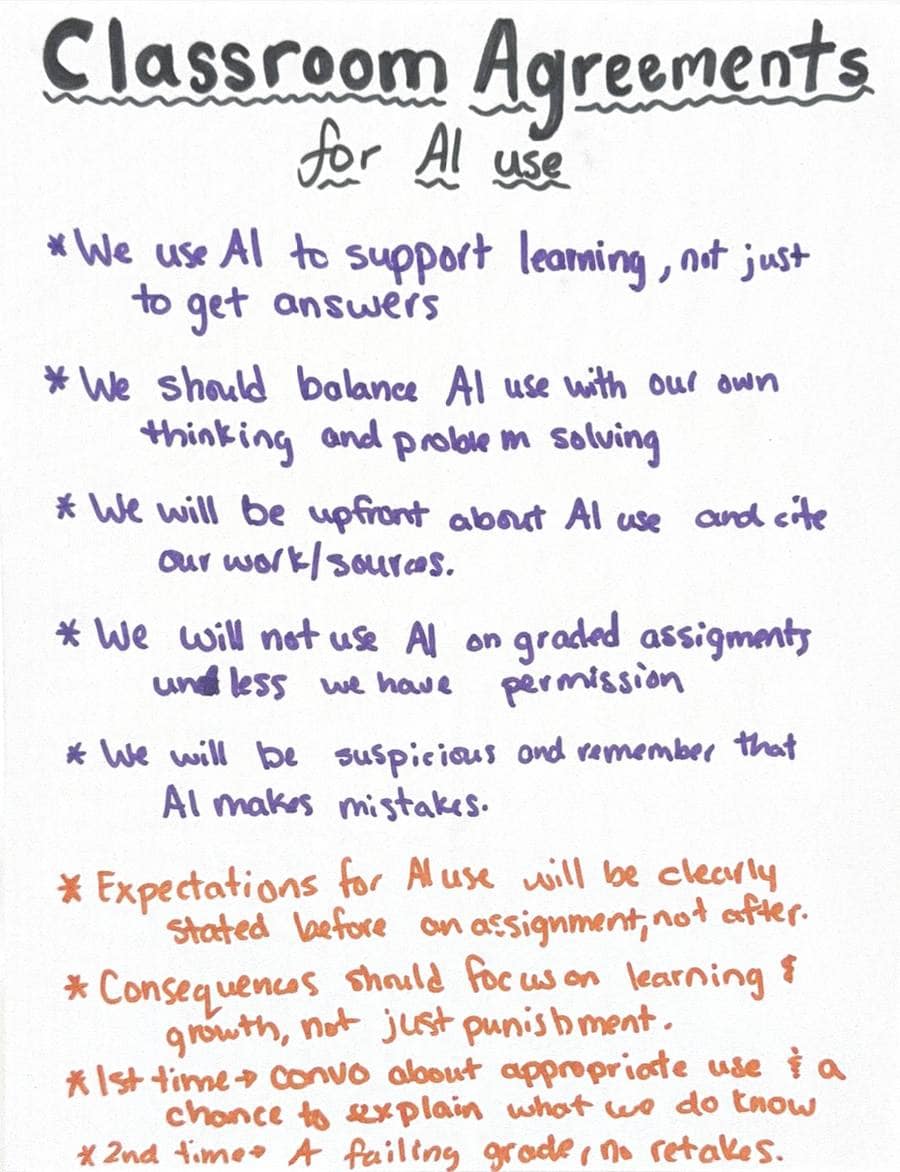 Classroom Agreements
for AI use
* We use AI to support learning, not just
to get answers
* We should balance AI use with our own
thinking and problem solving
* We will be upfront about AI use and cite
our work/sources.
* We will not use AI on graded assigments
unless we have permission
* We will be suspicious and remember that
AI makes mistakes.
* Expectations for AI use will be clearly
stated before an assignment, not after.
* Consequences should focus on learning &
growth, not just punishment.
* 1st time → convo about appropriate use & a
chance to explain what we do know
* 2nd time → A failing grade, no retakes.